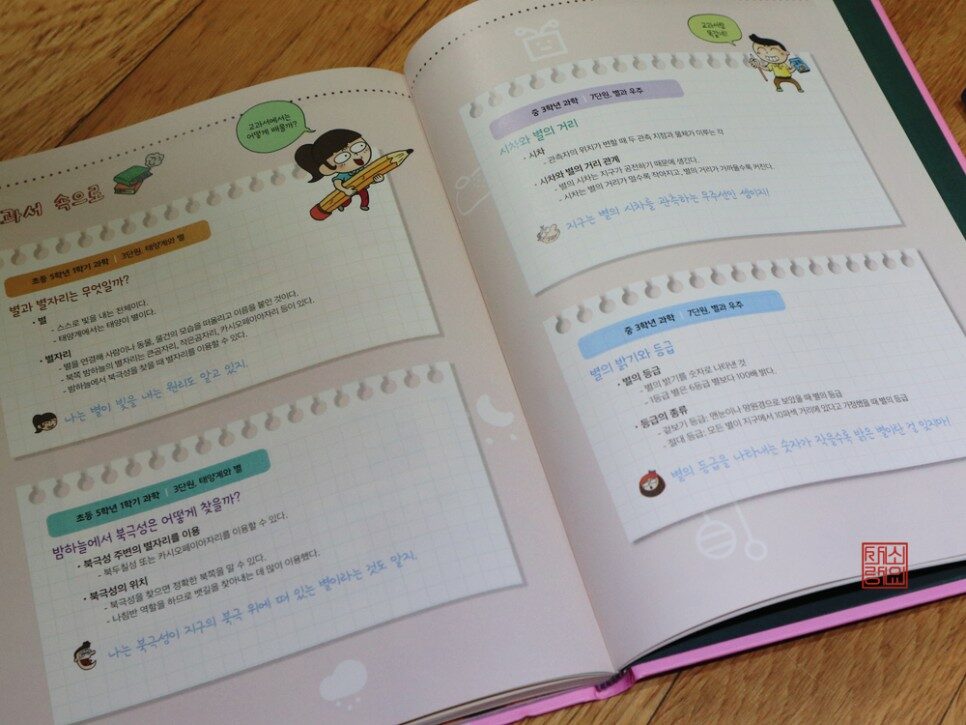 과서 속으로
교과서에서는
어떻게 배울까?
초등 5학년 1학기 과학 | 3단원. 태양계와 별
별과 별자리는 무엇일까?
• 별
- 스스로 빛을 내는 천체이다.
- 태양계에서는 태양이 별이다.
• 별자리
- 별을 연결해 사람이나 동물, 물건의 모습을 떠올리고 이름을 붙인 것이다.
- 북쪽 밤하늘의 별자리는 큰곰자리, 작은곰자리, 카시오페이아자리 등이 있다.
- 밤하늘에서 북극성을 찾을 때 별자리를 이용할 수 있다.
나는 별이 빛을 내는 원리도 알고 있지.
초등 5학년 1학기 과학 | 3단원. 태양계와 별
밤하늘에서 북극성은 어떻게 찾을까?
• 북극성 주변의 별자리를 이용
- 북두칠성 또는 카시오페이아자리를 이용할 수 있다.
• 북극성의 위치
- 북극성을 찾으면 정확한 북쪽을 알 수 있다.
- 나침반 역할을 하므로 뱃길을 찾아내는 데 많이 이용했다.
나는 북극성이 지구의 북극 위에 떠 있는 별이라는 것도 알지.
교과서랑
똑같네!
중 3학년 과학 | 7단원. 별과 우주
시차와 별의 거리
• 시차
- 관측자의 위치가 변할 때 두 관측 지점과 물체가 이루는 각
• 시차와 별의 거리 관계
- 별의 시차는 지구가 공전하기 때문에 생긴다.
- 시차는 별의 거리가 멀수록 작아지고, 별의 거리가 가까울수록 커진다.
지구는 별의 시차를 관측하는 우주선인 셈이지!
중 3학년 과학 | 7단원. 별과 우주
별의 밝기와 등급
• 별의 등급
- 별의 밝기를 숫자로 나타낸 것
- 1등급 별은 6등급 별보다 100배 밝다.
• 등급의 종류
- 겉보기 등급: 맨눈이나 망원경으로 보았을 때 별의 등급
- 절대 등급: 모든 별이 지구에서 10파섹 거리에 있다고 가정했을 때 별의 등급
별의 등급을 나타내는 숫자가 작을수록 밝은 별이란 걸 잊지마!